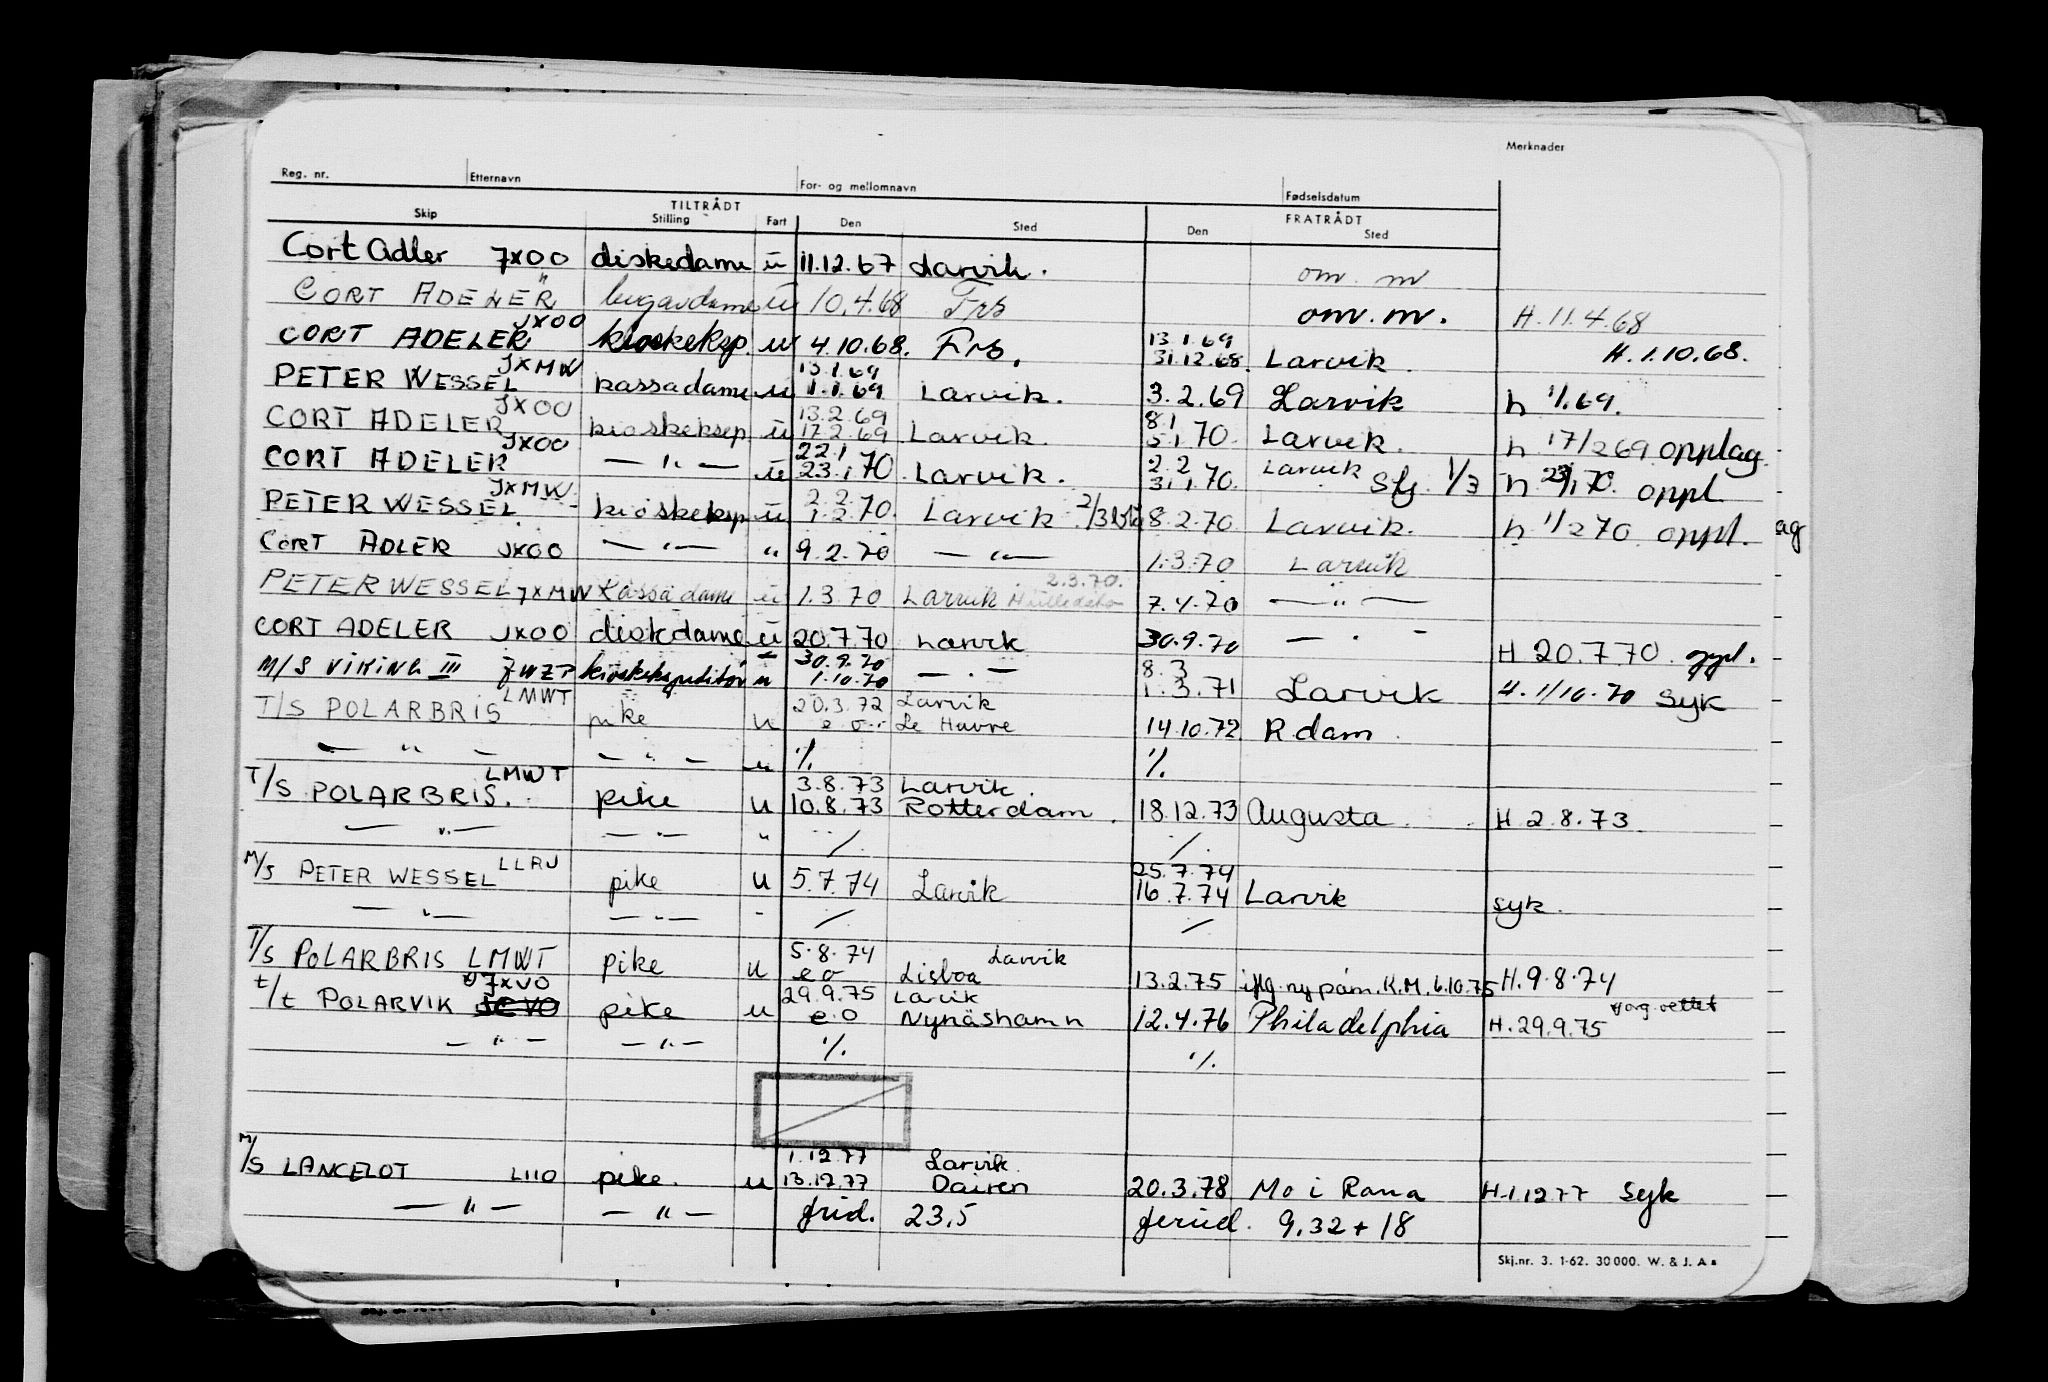 Merknader
Reg. nr. Etternavn For- og mellomnavn Fødselsdatum
TILTRÅDT FRATRÅDT
Skip Stilling Fart Den Sted Den Sted
Cort Adler JX00 diskedame u 11.12.67 Larvik. om. m
CORT ADELER " lugardame u 10.4.68 Frs om. m. H. 11.4.68
CORT ADELER JX00 kioskeksp. u 4.10.68. Frs. 13.1.69 31.12.68. Larvik. H. 1.10.68.
PETER WESSEL JXMW kassadame u 13.1.69 1.1.69 Larvik. 3.2.69 Larvik h 1/1.69.
CORT ADELER JX00 kioskeksp u 13.2.69 17.2.69 Larvik. 8.1 5.1.70. Larvik. h 17/2 69 opplag.
CORT ADELER JX00 — " — u 22.1 23.1.70 Larvik. 2.2 31.1.70. Larvik Sfj. 1/3 h 23/1 70. oppl.
PETER WESSEL JXMW kioskeksp u 2.2 1.2.70. Larvik 2/3 8.2.70 Larvik. h 1/2 70 oppl. ag
CORT ADLER JX00 — " — " 9.2.70 — " — 1.3.70 Larvik
PETER WESSEL JXMW Kassadame u 1.3.70 Larvik 2.3.70. 7.4.70 — " —
CORT ADELER JX00 diskdame u 20.7.70 Larvik 30.9.70 — . — H 20.7.70. oppl.
M/S VIKING III JWZP kioskekspeditør u 30.9.70 1.10.70 — . — 8.3 1.3.71 Larvik H. 1/10.70 syk
T/S POLARBRIS LMWT pike u 20.3.72 Larvik e.o. Le Havre 14.10.72 R.dam.
— " — — " — u ./. ./.
T/S POLARBRIS. LMWT pike u 3.8.73 Larvik. 10.8.73 Rotterdam. 18.12.73 Augusta. H 2.8.73.
— " — — " — " ./. ./.
M/S PETER WESSEL LLRU pike u 5.7.74 Larvik 25.7.74 16.7.74 Larvik syk.
— " — — " — - ./. ./.
T/S POLARBRIS LMWT pike u 5.8.74 Larvik e o Lisboa 13.2.75 iflg. ny påm. K.M. 6.10.75 H. 9.8.74
t/t POLARVIK JXVO pike u 29.9.75 Larvik e.o Nynäshamn 12.4.76 Philadelphia H. 29.9.75
— " — — " — ./. ./.
M/S LANCELOT LIIO pike. u 1.12.77 Larvik. 13.12.77 Dairen 20.3.78 Mo i Rana H. 1.12 77 syk
— " — — " — frid. 23,5 feried. 9,32 + 18
Skj.nr. 3. 1-62. 30 000. W. & J. A s